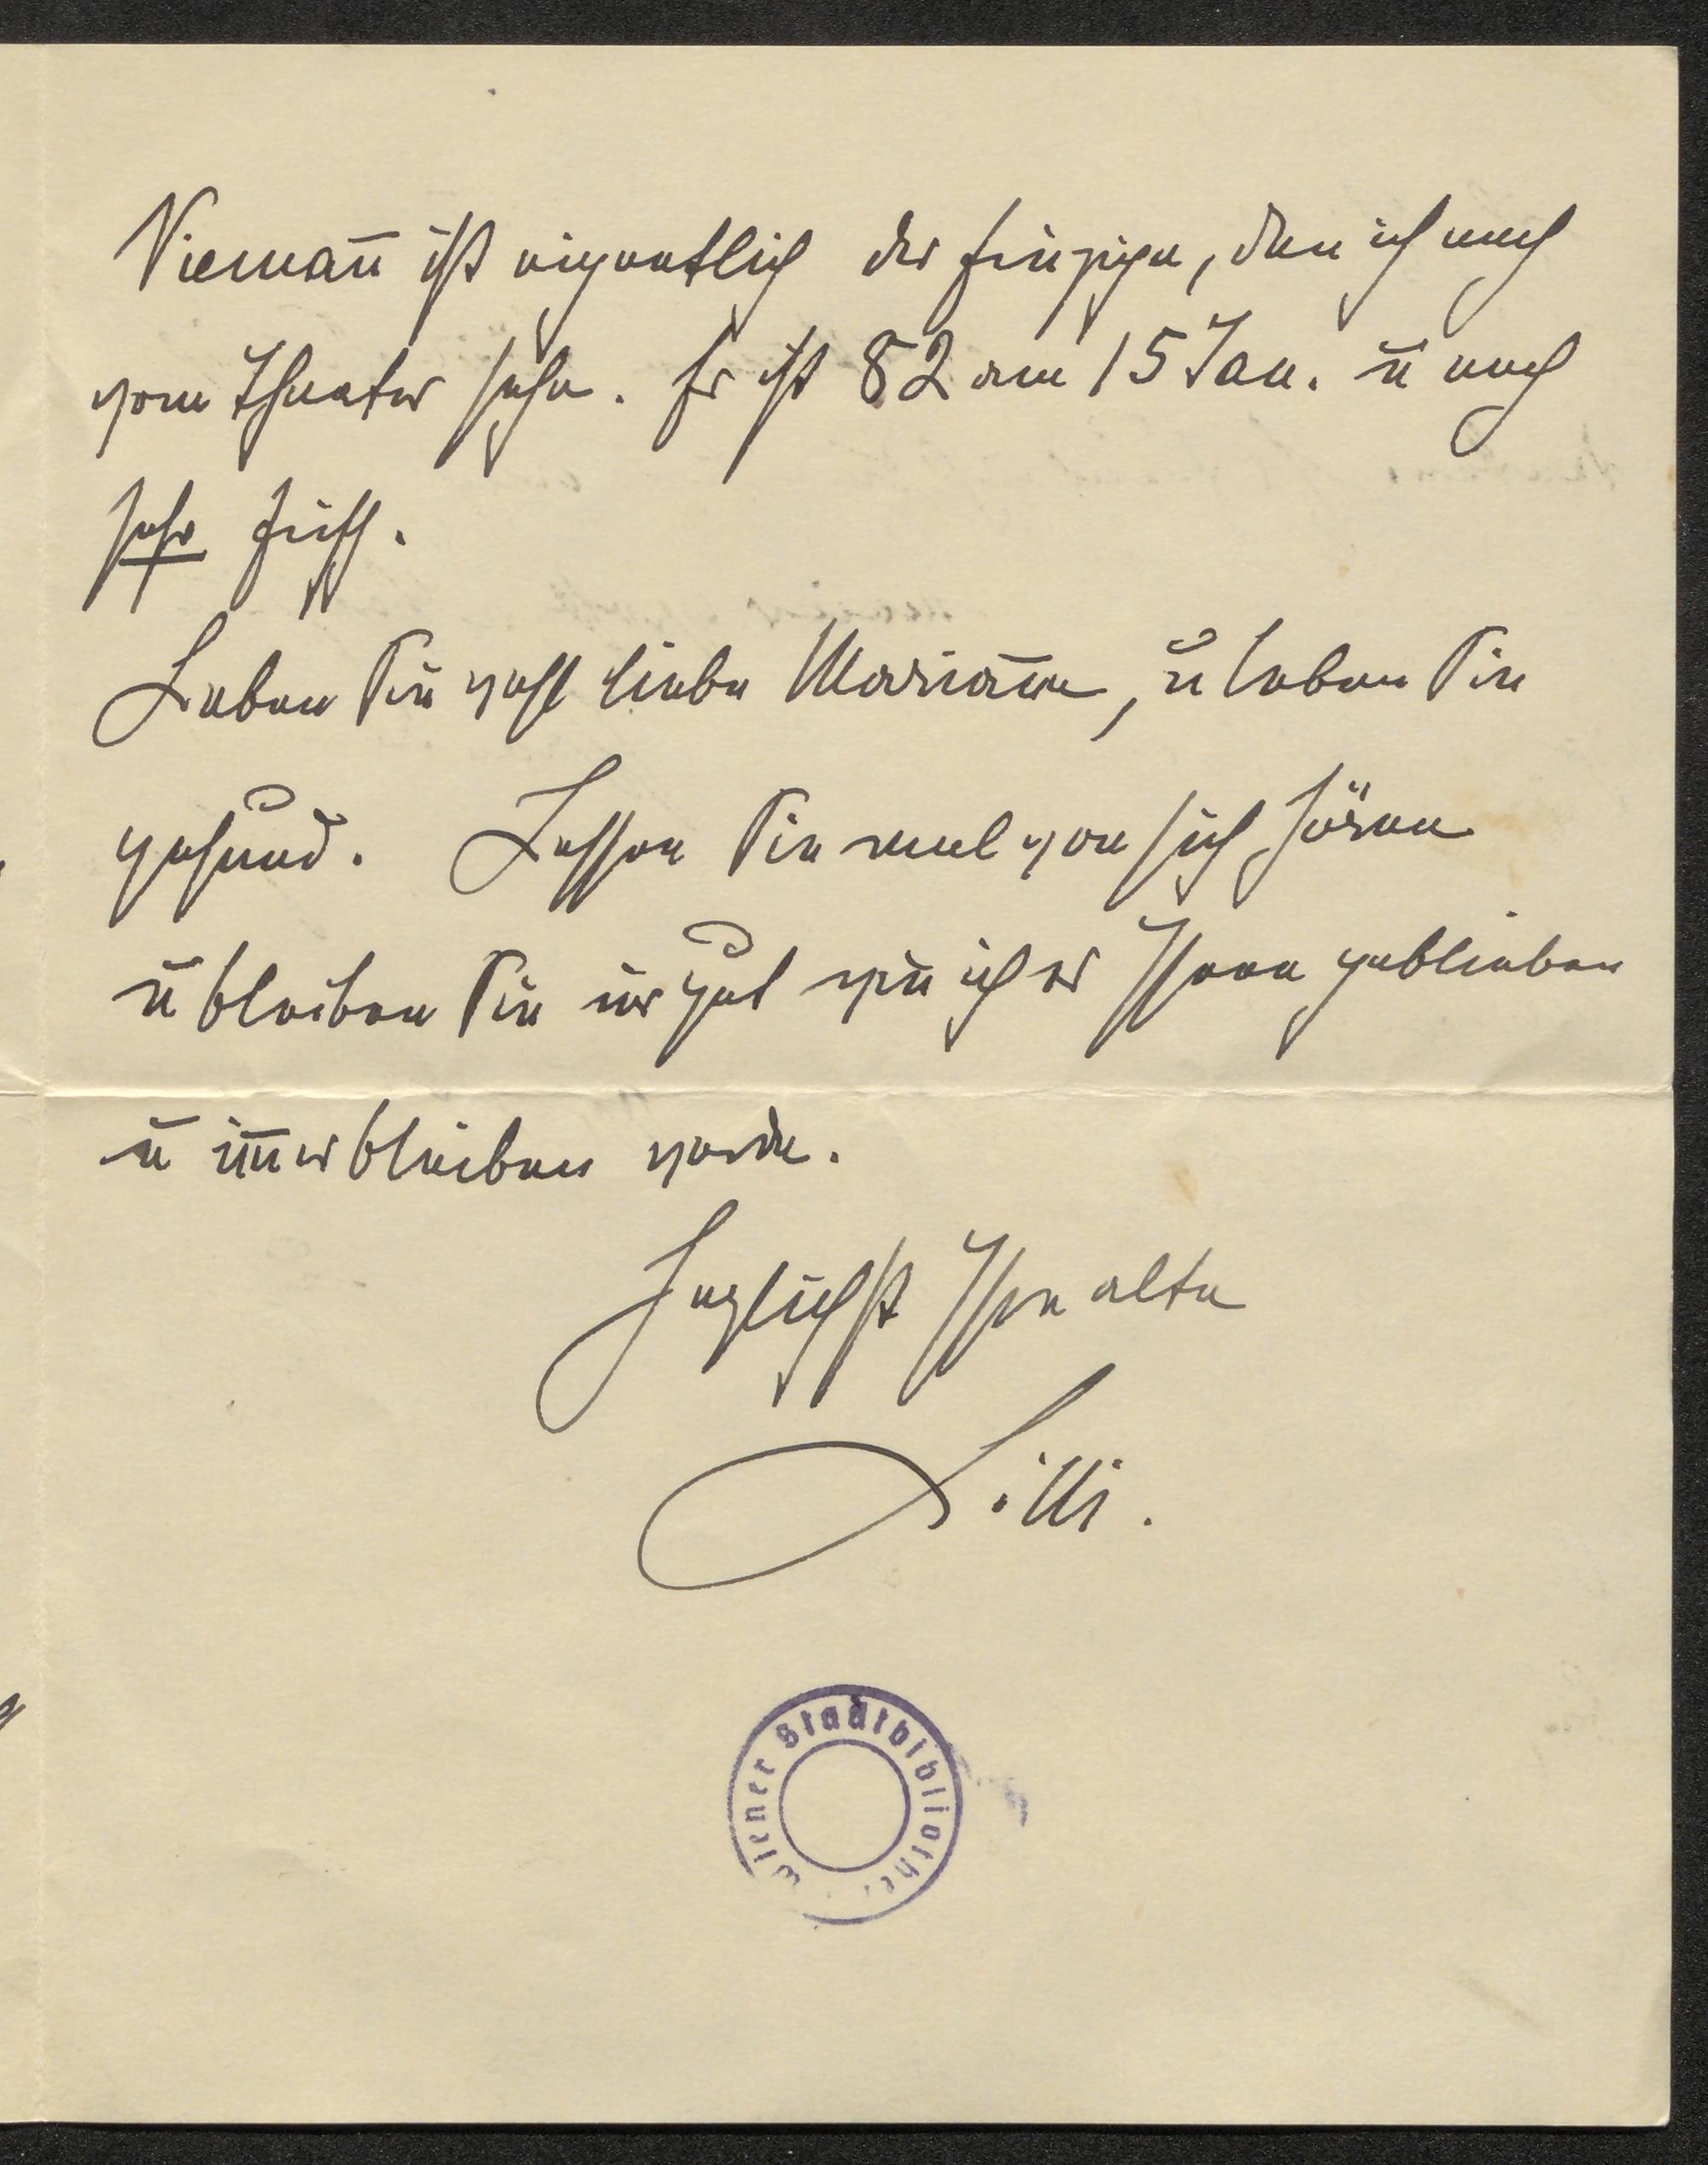 Niemañ ist eigentlich der Einzige, den ich noch
vom Theater sehe. Er ist 82 am 15 Jan. ū noch
sehr frisch.
Leben Sie wohl liebe Mariañe, ū leben Sie
gesund. Lassen Sie mal von sich hören
ū bleiben Sie mir gut wie ich es Ihnen geblieben
ū im̄er bleiben werde.
Herzlichst Ihre alte
Lilli.
Wiener Stadtbibliothek